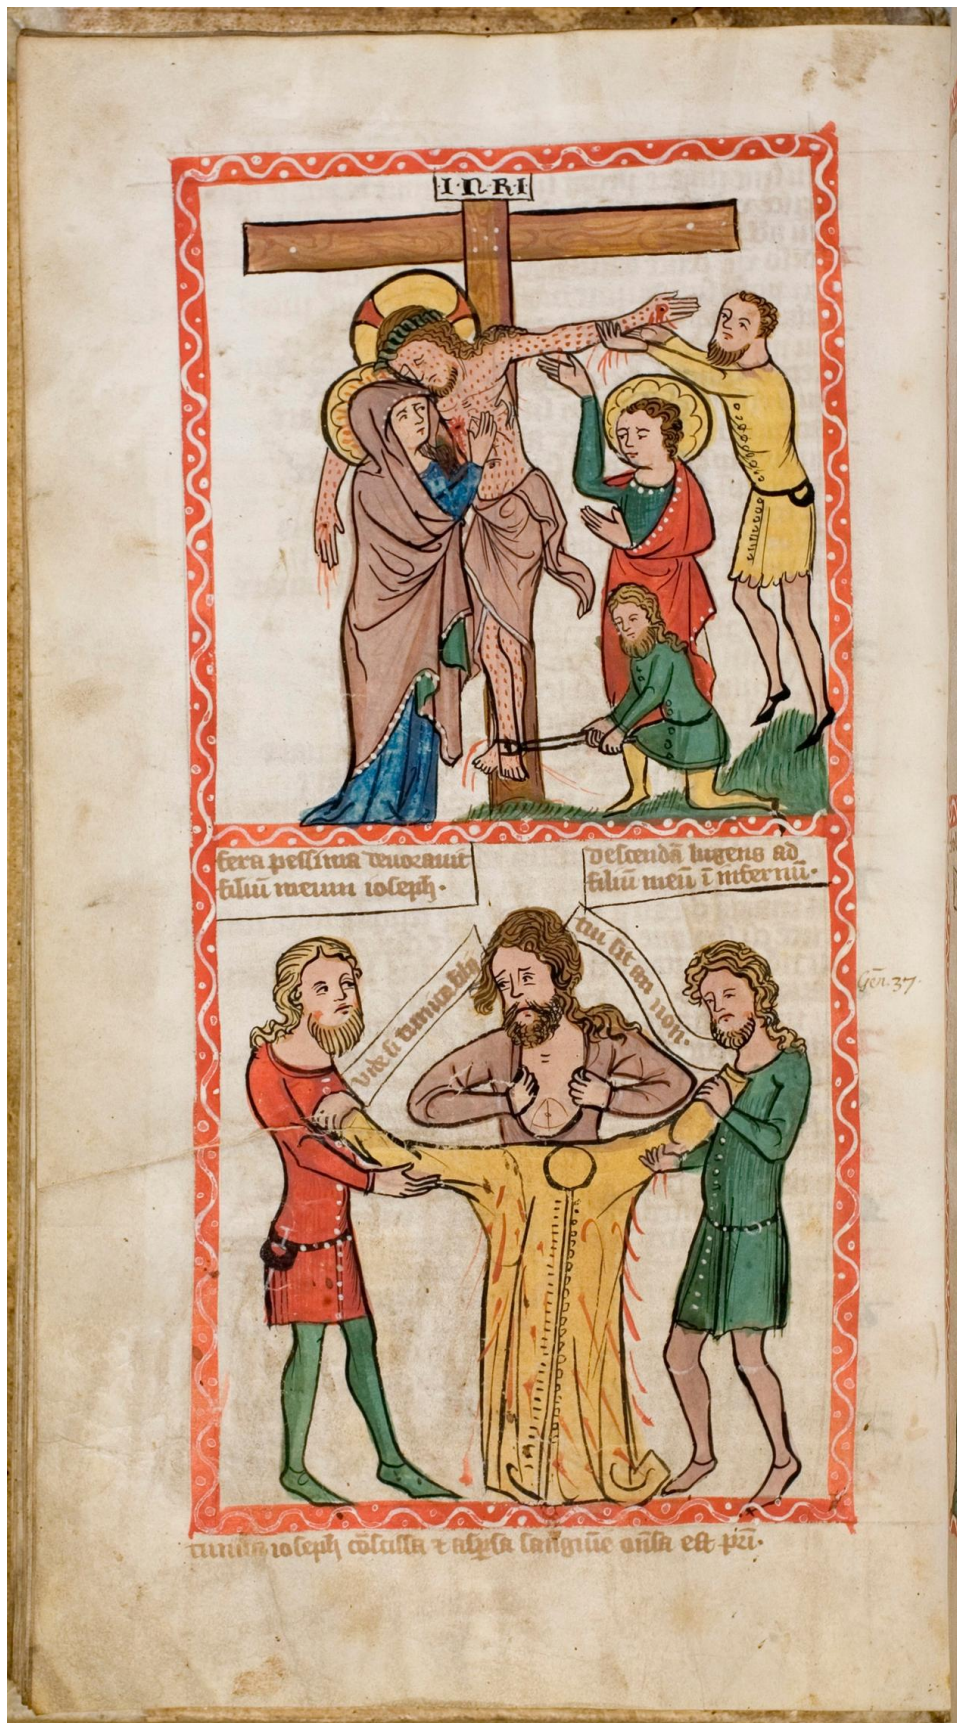 I·N·RI
fera pessima deuorauit
filiū meum ioseph·
descendā lugens ad
filiū meū ī infernū·
vide si tunica filij
tui sit an non·
Gen. 37.
tunica ioseph cōscissa ⁊ aspsa sanguīe oñsa est pri·